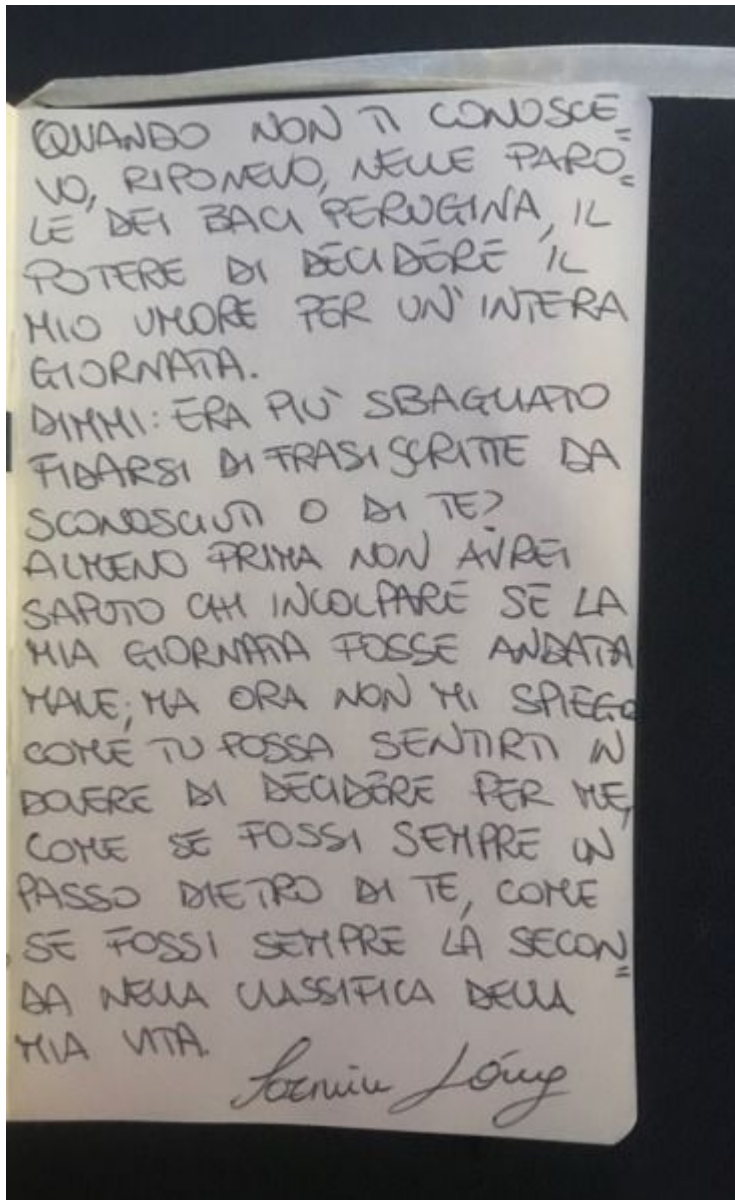 QUANDO NON TI CONOSCE=
VO, RIPONEVO, NELLE PARO=
LE DEI BACI PERUGINA, IL
POTERE DI DECIDERE IL
MIO UMORE PER UN' INTERA
GIORNATA.
DIMMI: ERA PIÙ SBAGLIATO
FIDARSI DI FRASI SCRITTE DA
SCONOSCIUTI O DI TE?
ALMENO PRIMA NON AVREI
SAPUTO CHI INCOLPARE SE LA
MIA GIORNATA FOSSE ANDATA
MALE; MA ORA NON MI SPIEGO
COME TU POSSA SENTIRTI IN
DOVERE DI DECIDERE PER ME,
COME SE FOSSI SEMPRE UN
PASSO DIETRO DI TE, COME
SE FOSSI SEMPRE LA SECON=
DA NELLA CLASSIFICA DELLA
MIA VITA.